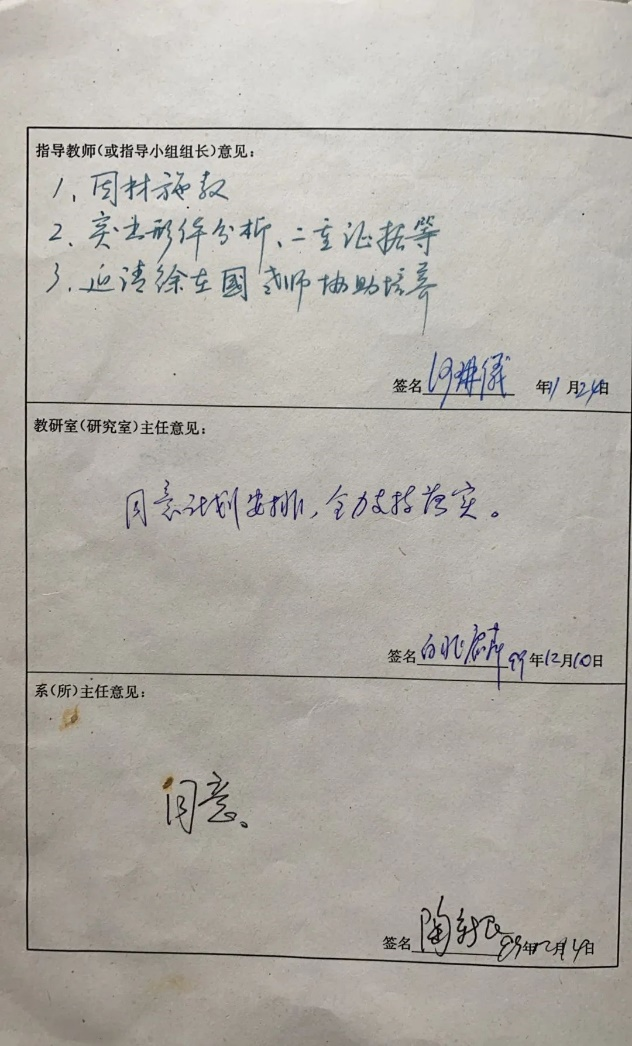 指导教师(或指导小组组长)意见:
1、因材施教
2、突出形体分析、二重证据等
3、延请徐在國老师协助培养
签名 何琳儀 年11月24日
教研室(研究室)主任意见:
同意计划安排,全力支持落实。
签名 白兆麟 99年12月10日
系(所)主任意见:
同意。
签名 陶新民 99年12月14日